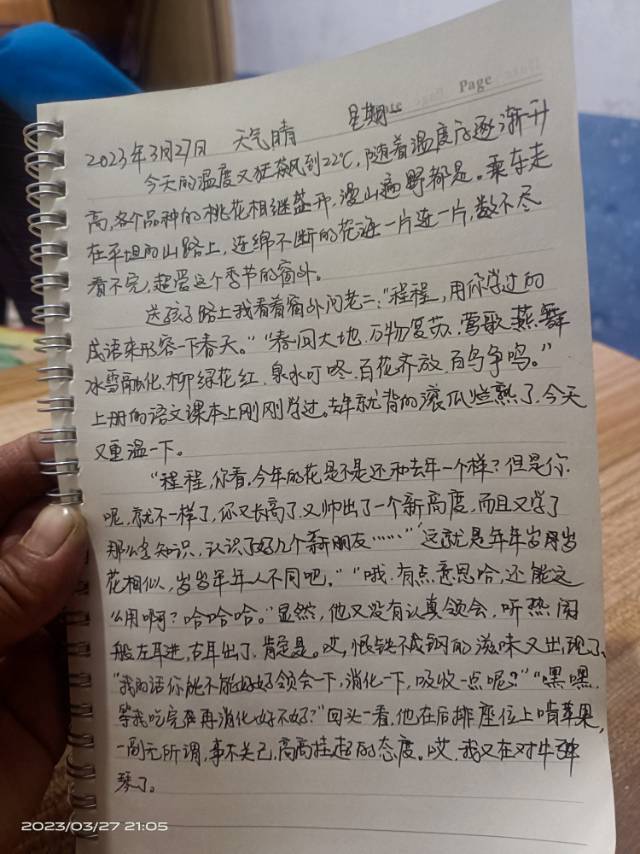 Page
2023年3月27日 天气晴 星期
今天的温度又狂飙到22℃,随着温度逐渐升
高,各个品种的桃花相继盛开,漫山遍野都是。乘车走
在平坦的山路上,连绵不断的花海一片连一片,数不尽
看不完,超爱这个季节的窗外。
送孩子路上我看着窗外问老二:"程程,用你学过的
成语来形容一下春天。""春回大地、万物复苏、莺歌燕舞
冰雪融化、柳绿花红、泉水叮咚、百花齐放、百鸟争鸣。"
上册的语文课本上刚刚学过。去年就背的滚瓜烂熟了,今天
又重温一下。
"程程,你看,今年的花是不是还和去年一个样?但是你
呢,就不一样了,你又长高了,又帅出了一个新高度,而且又学了
那么多知识,认识了好几个新朋友……""这就是年年岁岁
花相似,岁岁年年人不同吧。""哦,有点意思哈,还能这
么用啊?哈哈哈。"显然,他又没有认真领会,听热闹
般左耳进,右耳出了,肯定是。哎,恨铁不成钢的滋味又出现了、
"我的话你能不能好好领会一下,消化一下,吸收一点呢?""嘿嘿,
等我吃完在再消化好不好?"回头一看,他在后排座位上啃苹果,
一副无所谓,事不关己,高高挂起的态度。哎,我又在对牛弹
琴了。
2023/03/27 21:05